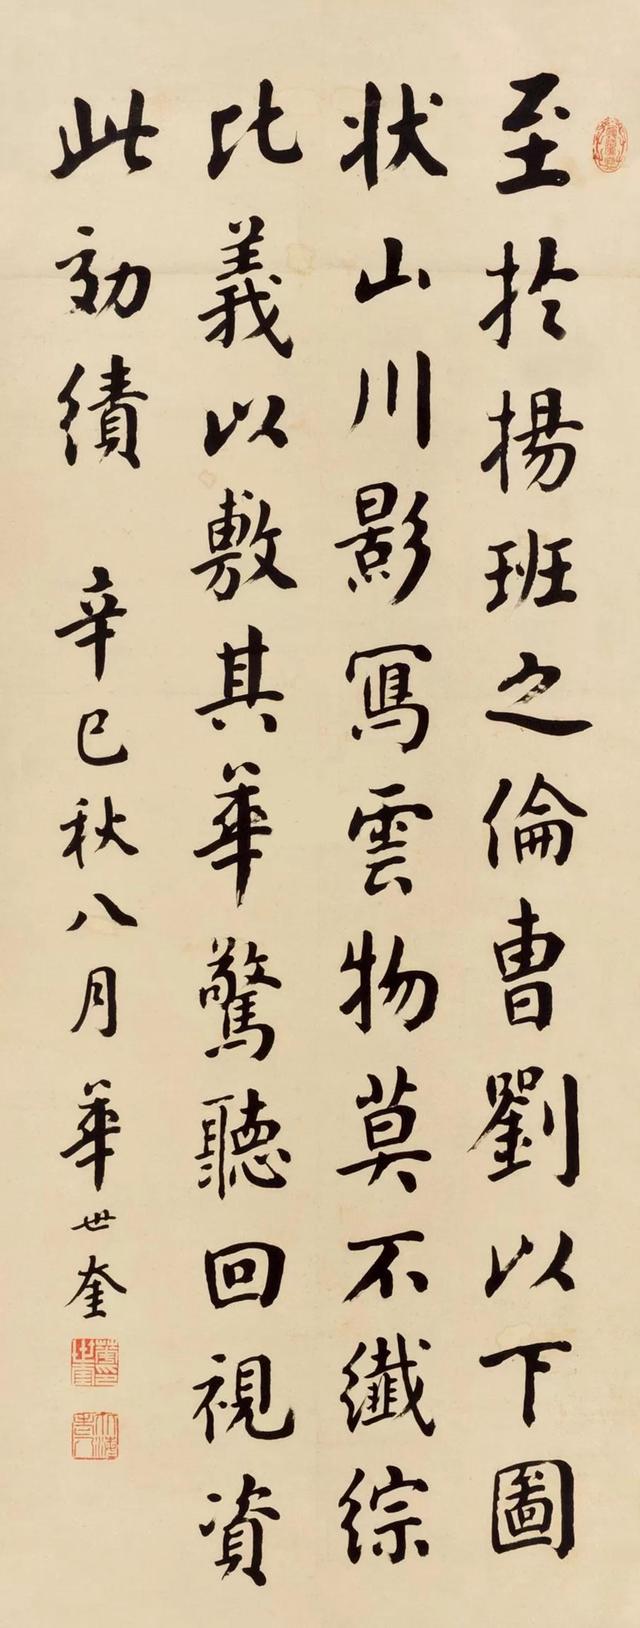 至於揚班之倫曹劉以下圖
狀山川影寫雲物莫不纖綜
比義以敷其華驚聽回視資
此効績 辛巳秋八月華世奎